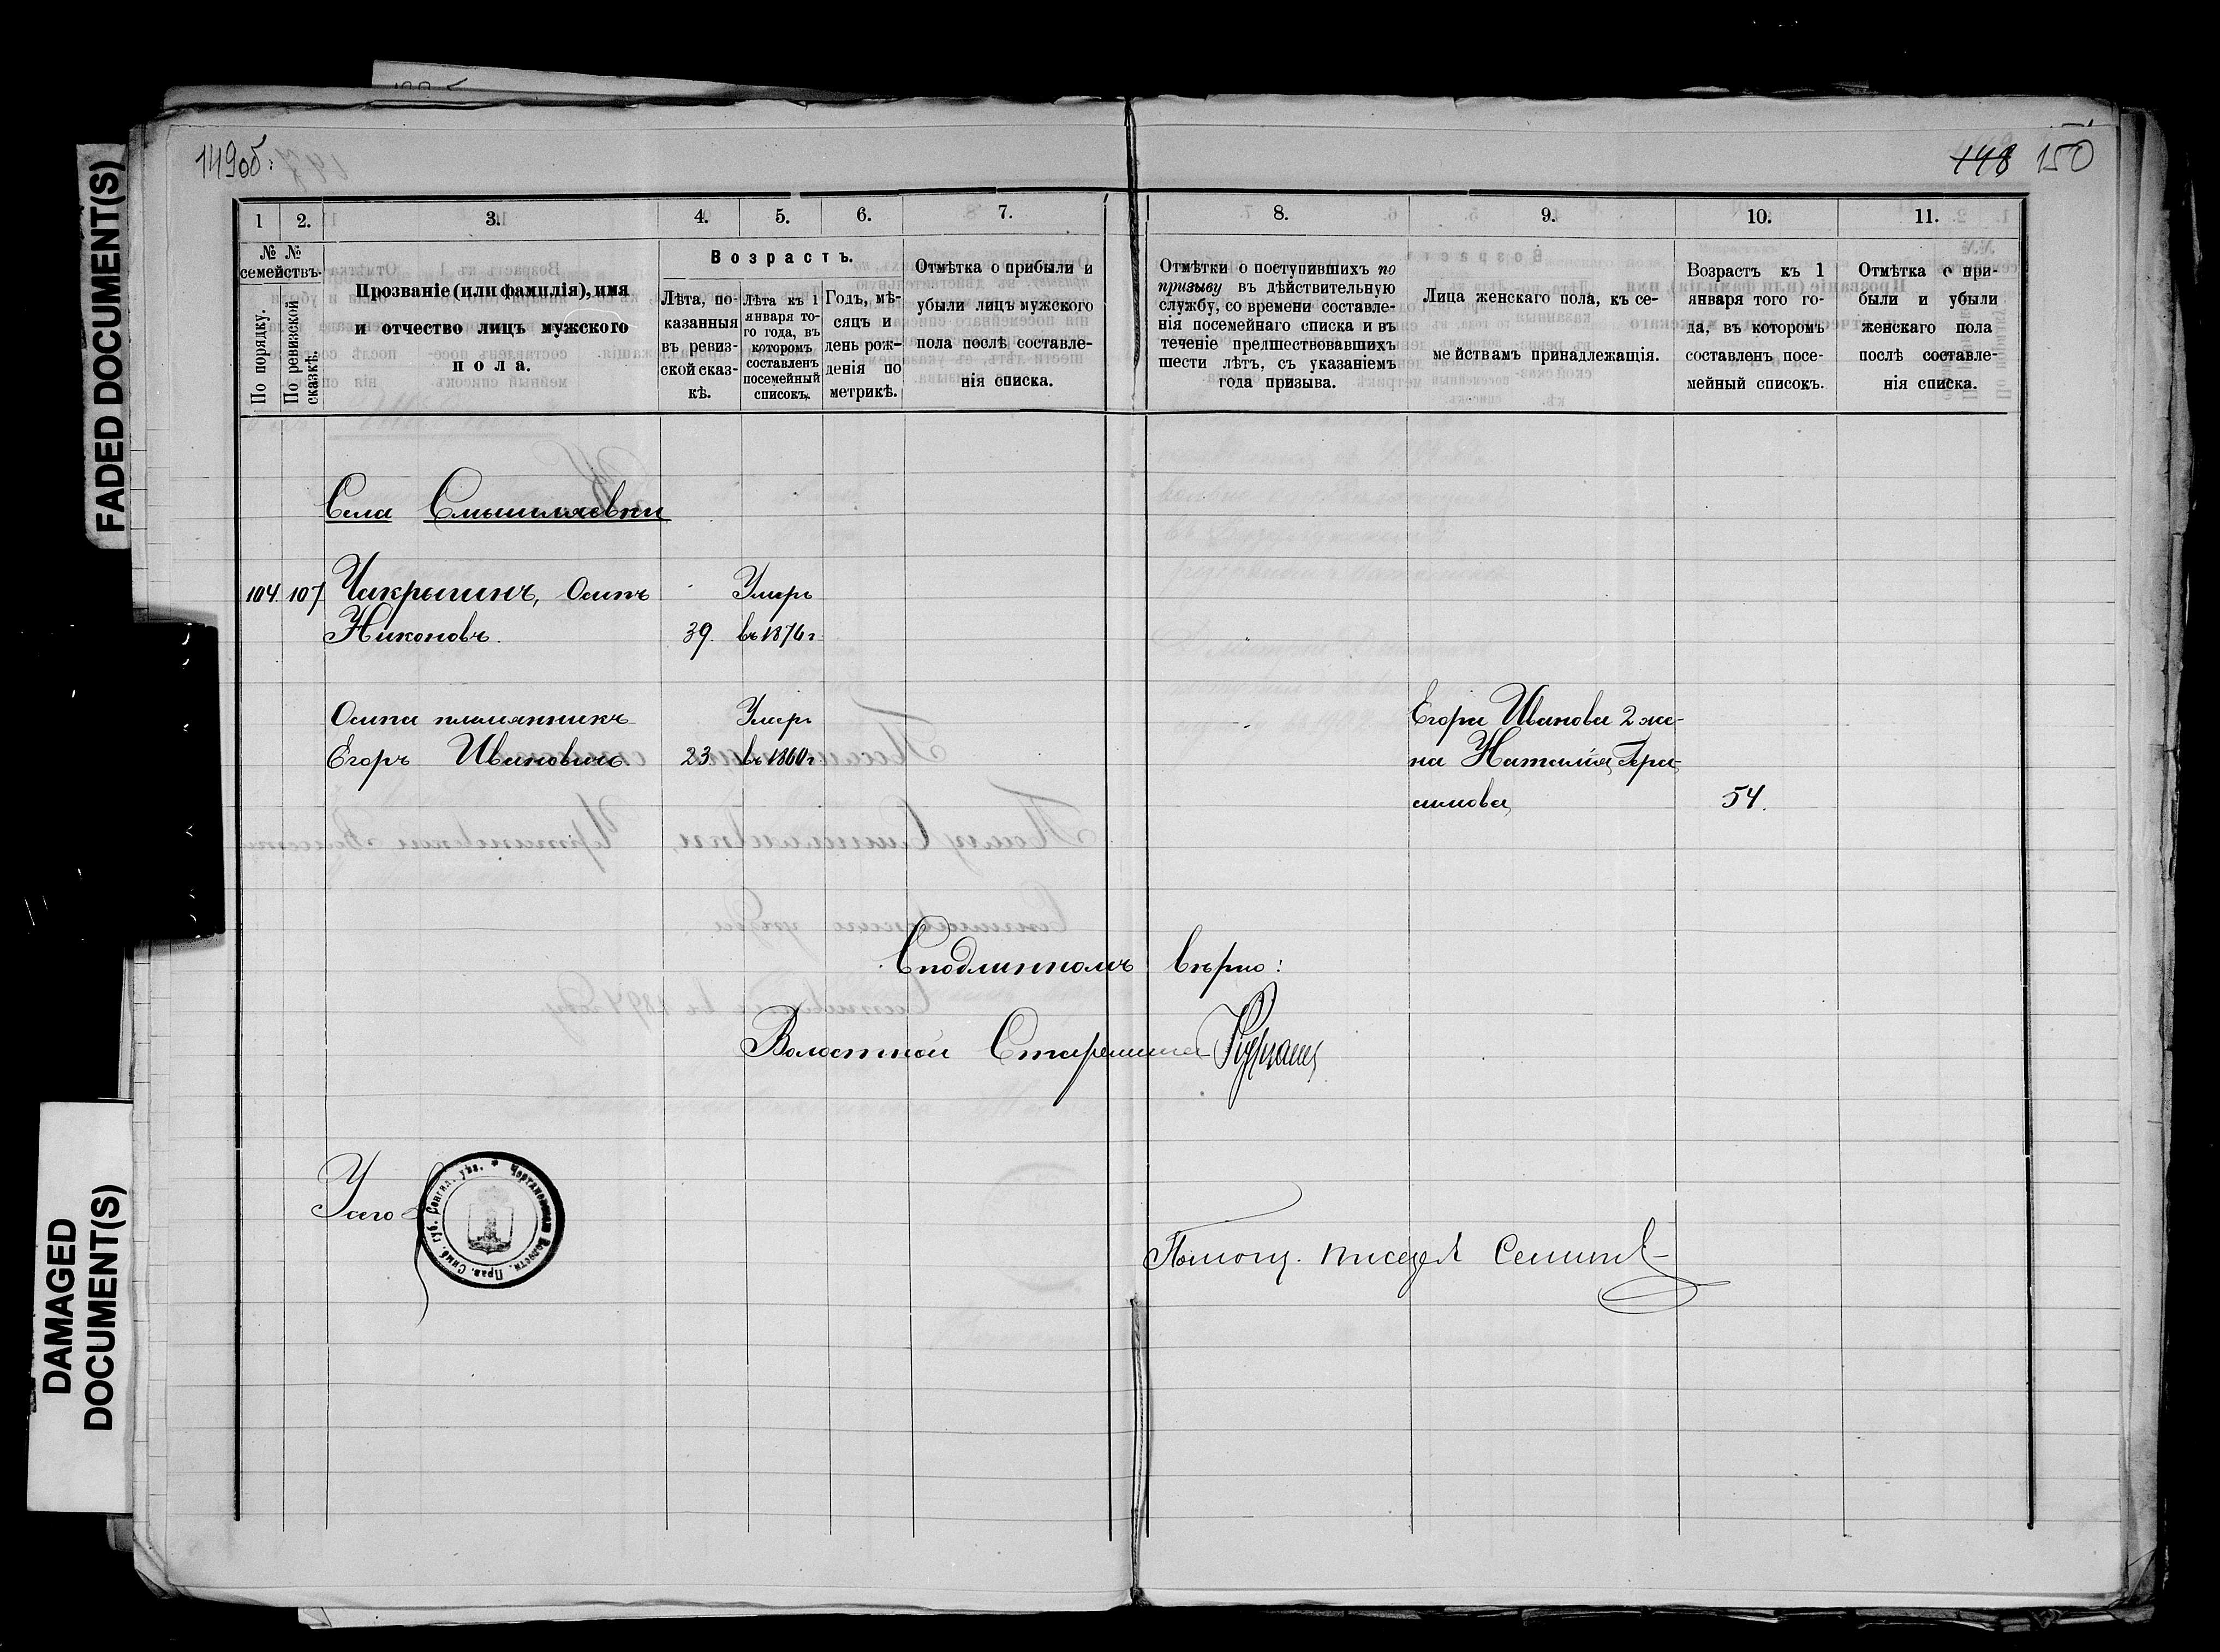 FADED DOCUMENT(S)
DAMAGED
DOCUMENT(S)
149об:
148 150
1
2.
3.
4.
5.
6.
7.
8.
9.
10.
11.
№ №
семействъ.
По порядку.
По ревизской
сказкѣ.
Прозваніе (или фамилія), имя
и отчество лицъ мужского
пола.
Возрастъ.
Лѣта, по-
казанныя
въ ревиз-
ской сказ-
кѣ.
Лѣта къ 1
января то-
го года, въ
которомъ
составленъ
посемейный
списокъ.
Годъ, мѣ-
сяцъ и
день рож-
денія по
метрикѣ.
Отмѣтка о прибыли и
убыли лицъ мужского
пола послѣ составле-
нія списка.
Отмѣтки о поступившихъ по
призыву въ дѣйствительную
службу, со времени составле-
нія посемейнаго списка и въ
теченіе предшествовавшихъ
шести лѣтъ, съ указаніемъ
года призыва.
Лица женскаго пола, къ се-
мействамъ принадлежащія.
Возрастъ къ 1
января того го-
да, въ которомъ
составленъ посе-
мейный списокъ.
Отмѣтка о при-
были и убыли
женскаго пола
послѣ составле-
нія списка.
Села Смышляевки
104. 107 Чакрыгинъ, Осипъ Умеръ
Никоновъ. 39. въ 1876 г
Осипа племянникъ Умеръ Егора Иванова 2 же-
Егоръ Ивановичъ. 23 въ 1860 г на Наталия Гера-
симова 54.
С подлиннымъ вѣрно:
Волостной Старшина
Чертановская Волостн. Прав. Симб. губ. Сенгил. уѣз. *
Помощ. писаря